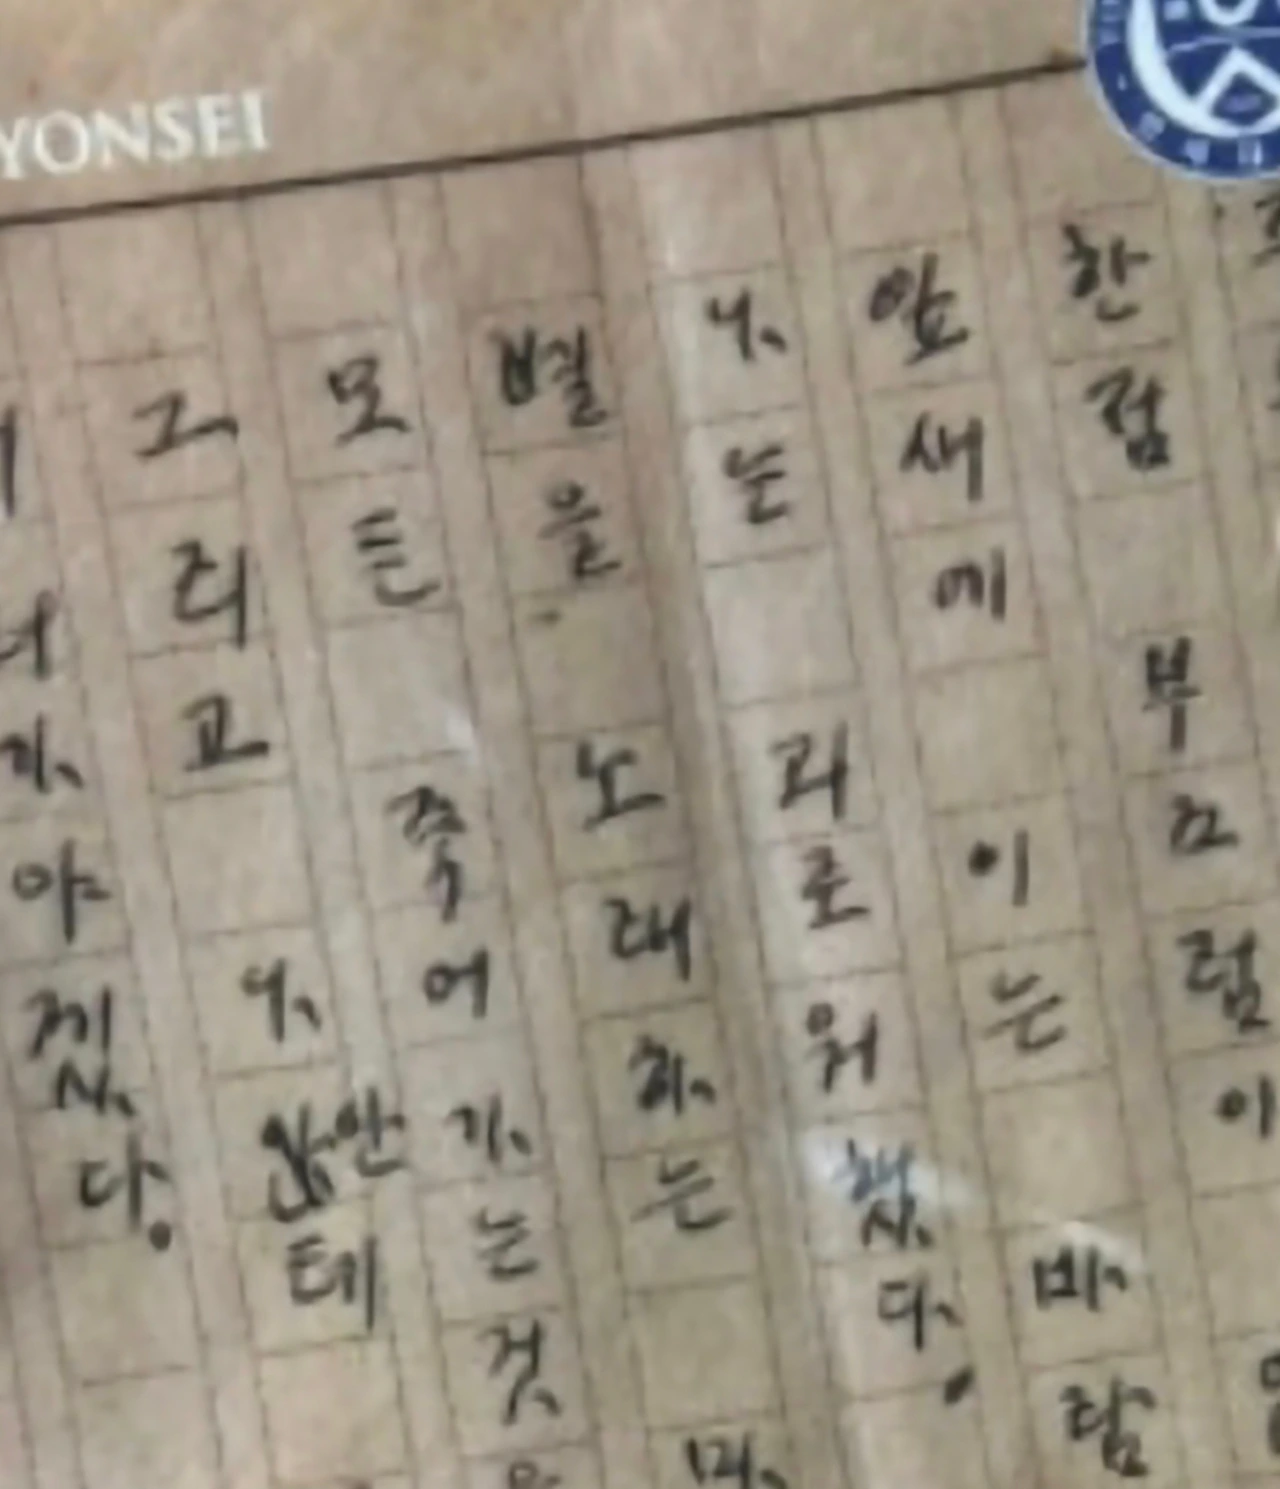 YONSEI
한점 부끄럼이
잎새에 이는 바람
나는 괴로워했다.
별을 노래하는 마
모든 죽어가는것
그리고 나안테
가야겠다.